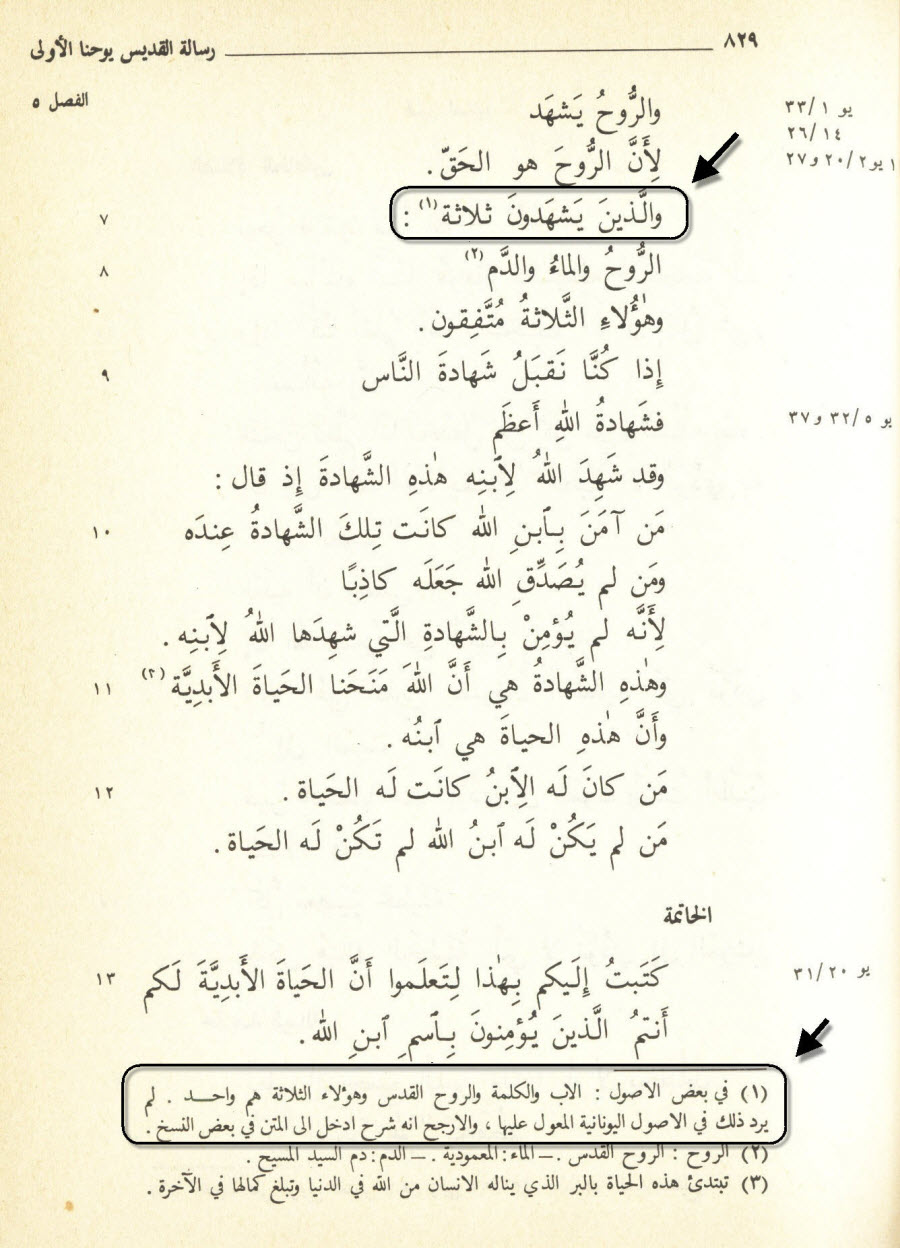 رسالة القديس يوحنا الأولى ٨٢٩
الفصل ٥
والرُّوحُ يَشهَد
يو ١/ ٣٣
١٤/ ٢٦
لِأَنَّ الرُّوحَ هو الحَقّ .
١ يو ٢/ ٢٠ و ٢٧
٧ والَّذينَ يَشهَدونَ ثلاثة (١) :
٨ الرُّوحُ والماءُ والدَّم (٢)
وهٰؤُلاءِ الثَّلاثةُ مُتَّفِقون .
٩ إِذا كُنَّا نَقبَلُ شَهادةَ النَّاس
فشَهادةُ اللهِ أَعظَم
يو ٥/ ٣٢ و ٣٧
وقد شَهِدَ اللهُ لِٱبنِه هٰذهِ الشَّهادةَ إِذ قال :
١٠ مَن آمَنَ بِٱبنِ الله كانَت تِلكَ الشَّهادةُ عِندَه
ومَن لم يُصَدِّقِ الله جَعَلَه كاذِبًا
لِأَنَّه لم يُؤمِنْ بِالشَّهادةِ الَّتي شهِدَها اللهُ لِٱبنِه .
١١ وهٰذهِ الشَّهادةُ هي أَنَّ اللهَ مَنَحَنا الحَياةَ الأَبدِيَّة (٣)
وأَنَّ هٰذهِ الحياةَ هي ٱبنُه .
١٢ مَن كانَ لَه الِٱبنُ كانَت لَه الحَياة .
مَن لم يَكُنْ لَه ٱبنُ الله لم تَكُنْ لَه الحَياة .
الخاتمة
١٣ كَتَبتُ إِلَيكم بِهٰذا لِتَعلَموا أَنَّ الحَياةَ الأَبدِيَّةَ لَكم
يو ٢٠/ ٣١
أَنتمُ الَّذينَ يُؤمِنونَ بِٱسمِ ٱبنِ الله .
(١) في بعض الاصول : الاب والكلمة والروح القدس وهؤلاء الثلاثة هم واحد . لم
يرد ذلك في الاصول اليونانية المعول عليها ، والارجح انه شرح ادخل الى المتن في بعض النسخ .
(٢) الروح : الروح القدس . ــ الماء : المعمودية . ــ الدم : دم السيد المسيح .
(٣) تبتدئ هذه الحياة بالبر الذي يناله الانسان من الله في الدنيا وتبلغ كمالها في الآخرة .